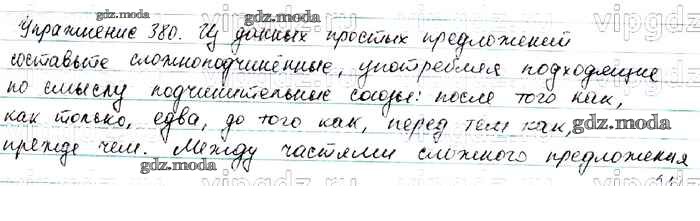 Упражнение 380. Из данных простых предложений
составьте сложноподчинённые, употребляя подходящие
по смыслу подчинительные союзы: после того как,
как только, едва, до того как, перед тем как,
прежде чем. Между частями сложного предложения
gdz.moda
gdz.moda
gdz.moda
gdz.moda
gdz.moda
vipgdz